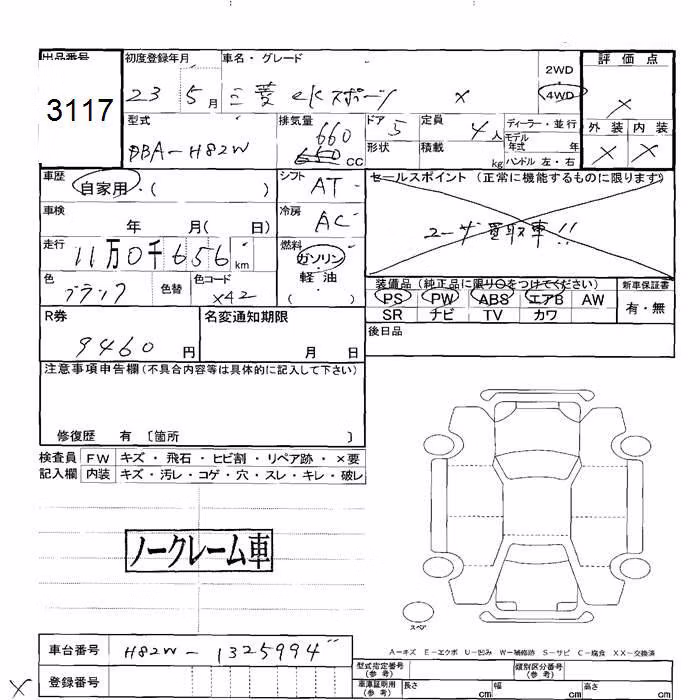 出品番号
3117
初度登録年月
23 5月
車名・グレード
三菱 ekスポーツ X
2WD
4WD
評価点
X
外装 内装
X X
型式
DBA-H82W
排気量
660
cc
ドア 5
形状
定員 4人
積載 kg
ディーラー・並行
モデル
年式 年
ハンドル 左・右
車歴
自家用・( )
シフト AT
セールスポイント (正常に機能するものに限ります)
ユーザー買取車!!
車検
年 月( 日)
冷房 AC
走行
11万0千656km
燃料
ガソリン・
軽油・
( )
色
ブラック
色替
色コード
X42
装備品(純正品に限り○をつけてください)
PS PW ABS エアB AW
SR ナビ TV カワ
新車保証書
有・無
R券
9460円
名変通知期限
月 日
後日品
注意事項申告欄(不具合内容等は具体的に記入して下さい)
修復歴 有 〔箇所 〕
検査員
記入欄
FW キズ・飛石・ヒビ割・リペア跡・×要
内装 キズ・汚レ・コゲ・穴・スレ・キレ・破レ
ノークレーム車
スペア
A-キズ E-エクボ U-凹み W-補修跡 S-サビ C-腐食 XX-交換済
車台番号 H82W-1325994
登録番号
X
型式指定番号
(参考)
類別区分番号
(参考)
車庫証明用
(参考)
長さ cm
幅 cm
高さ cm